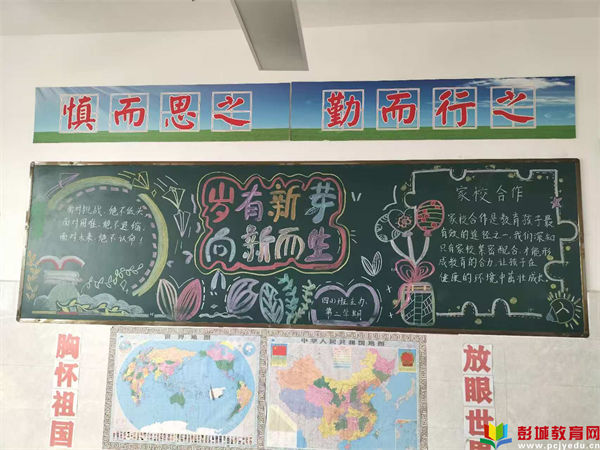 慎而思之
勤而行之
面对挑战,绝不低头
面对困难,绝不退缩
面对未来,绝不认命!
岁有新芽
向新而生
四(1)班主办
第二学期
家校合作
家校合作是教育孩子最
有效的途径之一,我们深知
只有家校紧密配合,才能形
成教育的合力,让孩子在
健康的环境中茁壮成长
世界地图
中华人民共和国地图
胸怀祖国
放眼世界
彭城教育网
www.pcjyedu.cn